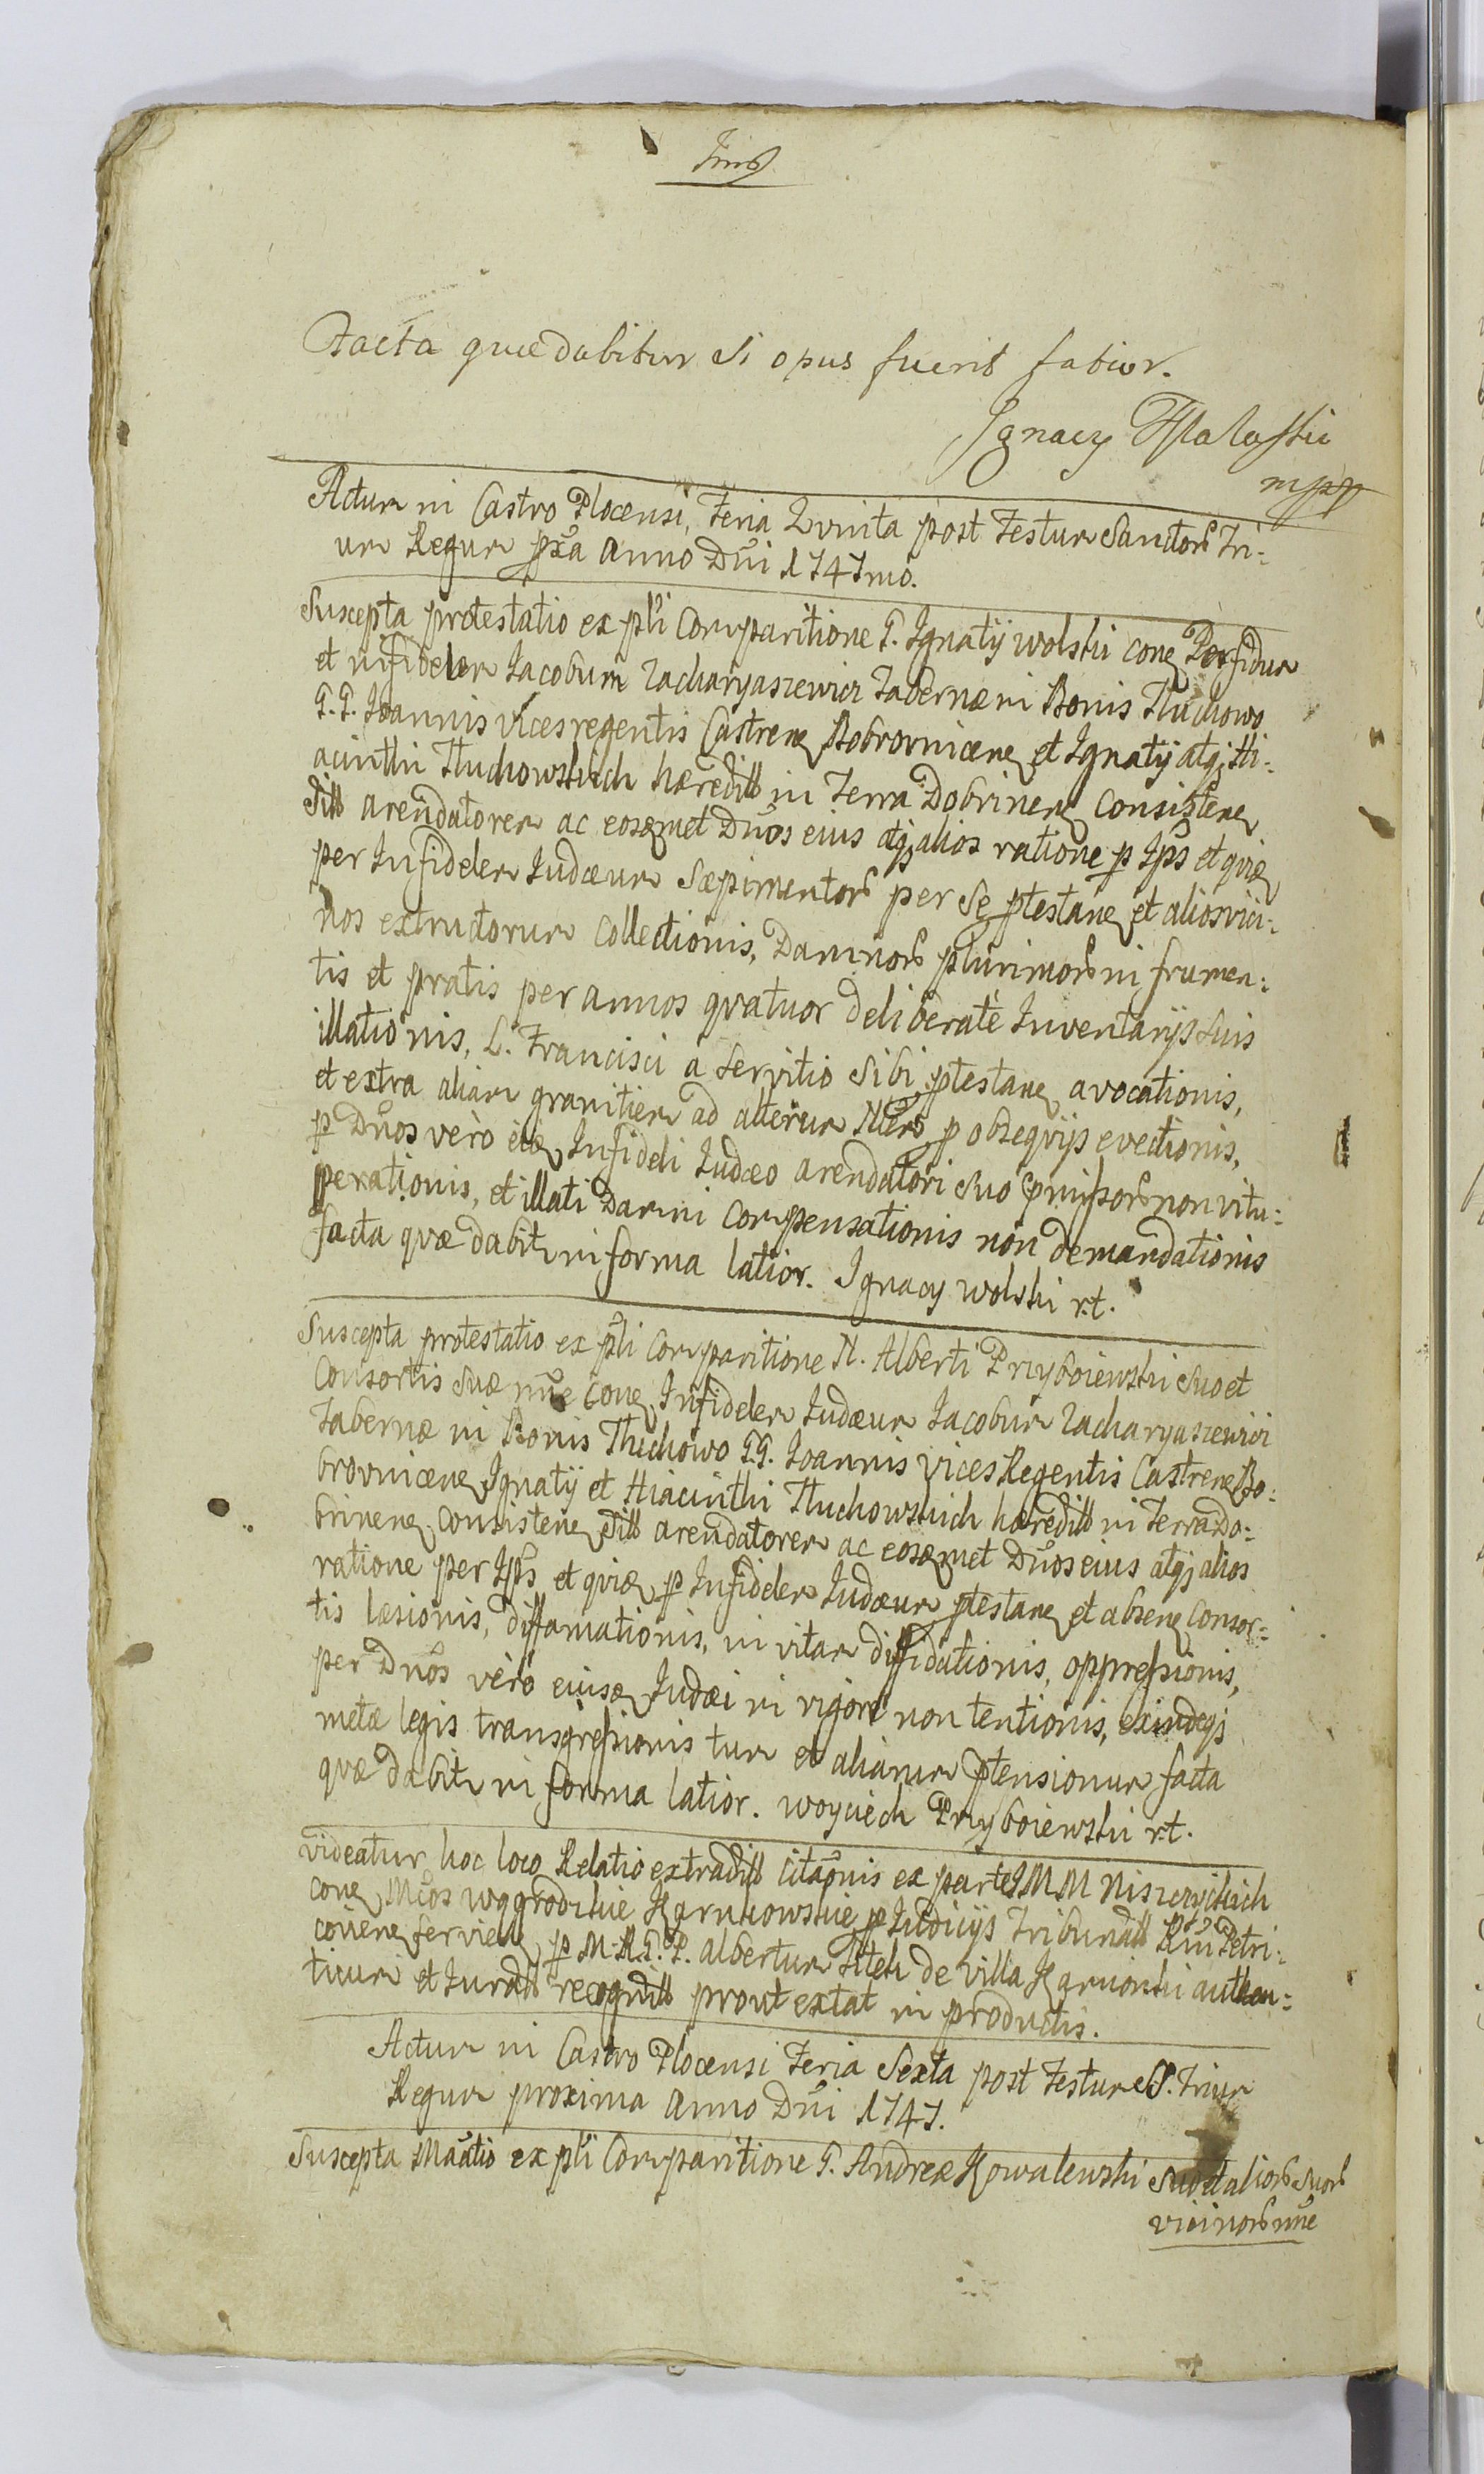 facta quæ dabitur si opus fuerit latior.
Ignacy
mpp
Actum in Castro Plocensi, Feria Quinta post Festum Sanctorũ Tri-
um Regum pxã Anno Dñi 1747mo.
Suscepta protestatio ex pli Comparitione G. Ignatij Wolski cone Perfidum
et infidelem Jacobum Zacharyaszewicz Tabernæ in Bonis Tłuchowo
G.G. Joannis Vicesregentis Castrene Bobrovnicene et Ignatij atq; Hi-
acinthi Tłuchowskich hæredũ in Terra Dobrinen Consistene
sitũ arendatorem ac eosqmet Dños eius atq; alios ratione p Ips et quiæ
per Infidelem Judæum Sæpimentorũ per Se ptestane et alios vici-
nos extructorum Collectionis, Damnorũ plurimorũ in frumen-
tis et pratis per annos quatuor deliberatè Inventarijs suis
illationis, L. Francisci a Servitio Sibi ptestane avocationis,
et extra aliam granitiem ad alterum p obsequijs evectionis,
p Dños verò eiæ Infideli Judæo arendatori Suo pmissorũ non vitu-
perationis, et illati Damni Compensationis non demandationis
facta quæ dabitr in forma latior. Ignacy Wolski r.t.
Suscepta protestatio ex pli Comparitione N. Alberti Przyboiewski Suo et
Consortis Suæ nñe Cone Infidelem Judæum Jacobum Zacharyaszewicz
Tabernæ in Bonis Tłuchowo G.G. Joannis Vices Regentis Castrene Bo-
brovnicene Ignatij et Hiacinthi Tłuchowskich hæredũ in Terra Do-
brinene Consistene sitũ arendatorem ac eosqmet Dños eius atq; alios
ratione per Ips et quiæ p Infidelem Judæum ptestane et absene Consor-
tis læsionis, diffamationis, in vitam diffidationis, oppressionis,
per Dños vèrò eiusq Judæi in rigore non tentionis, exindeq;
metæ legis transgressionis tum et aliarum ptensionum facta
quæ dabitr in forma latior. Woyciech Przyboiewski r.t.
Videatur hoc loco Relatio extraditũ Citaõnis ex parte J M M Niszczyckich
cone Mcos Wggrodzkie Karnkowskie p Judicijs Tribunalũ Rni Petri-
coviene serviene p M. R. G. P. Albertum Sitek de villa Karwoski authen-
ticum et Juratũ recognitũ prout extat in productis.
Actum in Castro Plocensi Feria Sexta post Festum SS. Trium
Regum proxima Anno Dñi 1747.
Suscepta Maãtio ex pli Comparitione G. Andreæ Kowalewski Suo et aliorũ Suorũ
vicinorũ nñe